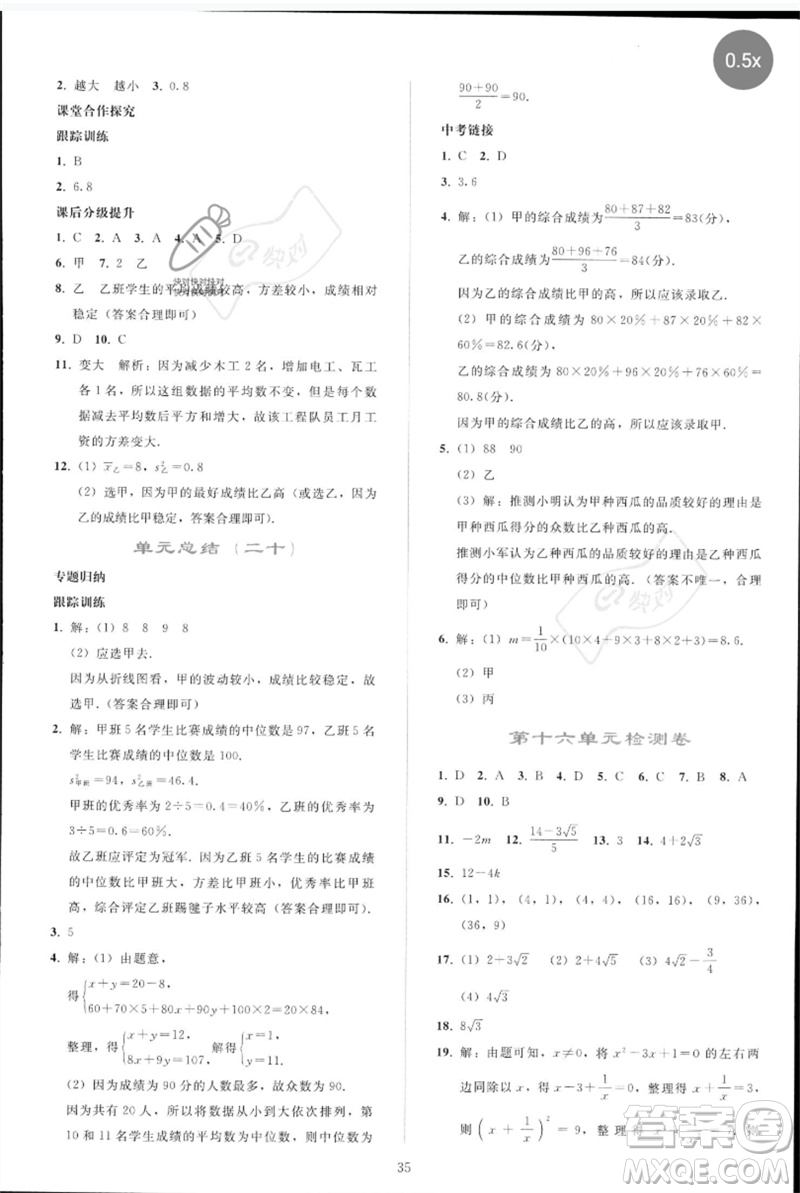 0.5x
2. 越大 越小 3. 0.8
课堂合作探究
跟踪训练
1. B
2. 6.8
课后分级提升
1. C 2. A 3. A 4. A 5. D
6. 甲 7. 2 乙
8. 乙 乙班学生的平均成绩较高，方差较小，成绩相对
稳定（答案合理即可）
9. D 10. C
11. 变大 解析：因为减少木工 2 名，增加电工、瓦工
各 1 名，所以这组数据的平均数不变，但是每个数
据减去平均数后平方和增大，故该工程队员工月工
资的方差变大.
12. (1) x̄乙=8，s²乙=0.8
(2) 选甲，因为甲的最好成绩比乙高（或选甲，因为
乙的成绩比甲稳定，答案合理即可）.
单元总结（二十）
专题归纳
跟踪训练
1. 解：(1) 8 8 9 8
(2) 应选甲去.
因为从折线图看，甲的波动较小，成绩比较稳定，故
选甲.（答案合理即可）
2. 解：甲班 5 名学生比赛成绩的中位数是 97，乙班 5
名学生比赛成绩的中位数是 100.
s²甲班=94，s²乙班=46.4.
甲班的优秀率为 2÷5=0.4=40%，乙班的优秀率为
3÷5=0.6=60%.
故乙班应评定为冠军. 因为乙班 5 名学生的比赛成绩
的中位数比甲班大，方差比甲班小，优秀率比甲班
高，综合评定乙班踢毽子水平较高（答案合理即可）.
3. 5
4. 解：(1) 由题意，
得{x+y=20−8,
60+70×5+80x+90y+100×2=20×84,
整理，得{x+y=12, 8x+9y=107, 解得{x=1, y=11.
(2) 因为成绩为 90 分的人数最多，故众数为 90.
因为共有 20 人，将这组数据从小到大依次排列，第
10 和 11 名学生成绩的平均数为中位数，则中位数为
(90+90)/2=90.
中考链接
1. C 2. D
3. 3.6
4. 解：(1) 甲的综合成绩为(80+87+82)/3=83(分)，
乙的综合成绩为(80+96+76)/3=84(分).
因为乙的综合成绩比甲的高，所以应该录取乙.
(2) 甲的综合成绩为 80×20%+87×20%+82×
60%=82.6(分)，
乙的综合成绩为 80×20%+96×20%+76×60%=
80.8(分).
因为甲的综合成绩比乙的高，所以应该录取甲.
5. (1) 88 90
(2) 乙
(3) 解：推测小明认为甲种西瓜的品质较好的理由
是甲种西瓜得分的众数比乙种西瓜的高.
推测小军认为乙种西瓜的品质较好的理由是乙种西
瓜得分的中位数比甲种西瓜的高.（答案不唯一，合理
即可）
6. 解：(1) m=1/10×(10×4+9×3+8×2+3×1)=8.6.
(2) 甲
(3) 丙
第十六单元检测卷
1. D 2. A 3. B 4. C 5. D 6. B 7. B 8. A
9. D 10. B
11. −2m 12. (14−3√5)/5 13. 3 14. 4+2√3
15. 12−4k
16. (1, 1), (4, 1), (4, 4), (16, 16), (9, 36),
(36, 9)
17. (1) 2+3√2 (2) 4√3+2√5 (3) 4√2−3/4
(4) 4√3
18. 8√3
19. 解：由题可知，x≠0，将 x²−3x+1=0 的左右两
边同除以 x，得 x−3+1/x=0，整理得 x+1/x=3，
则(x+1/x)²=9，整理得
35
快对
快对
答案圈